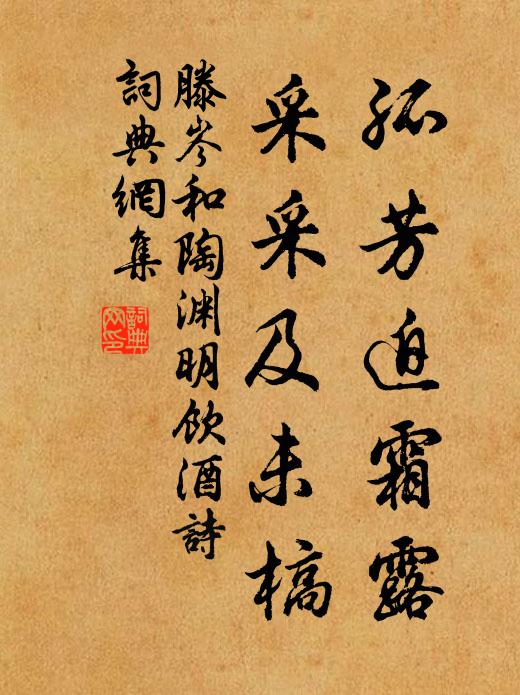 孤芳迫霜露
采采及未槁
滕岑和陶渊明飲酒詩
詞典網集
詞典網印